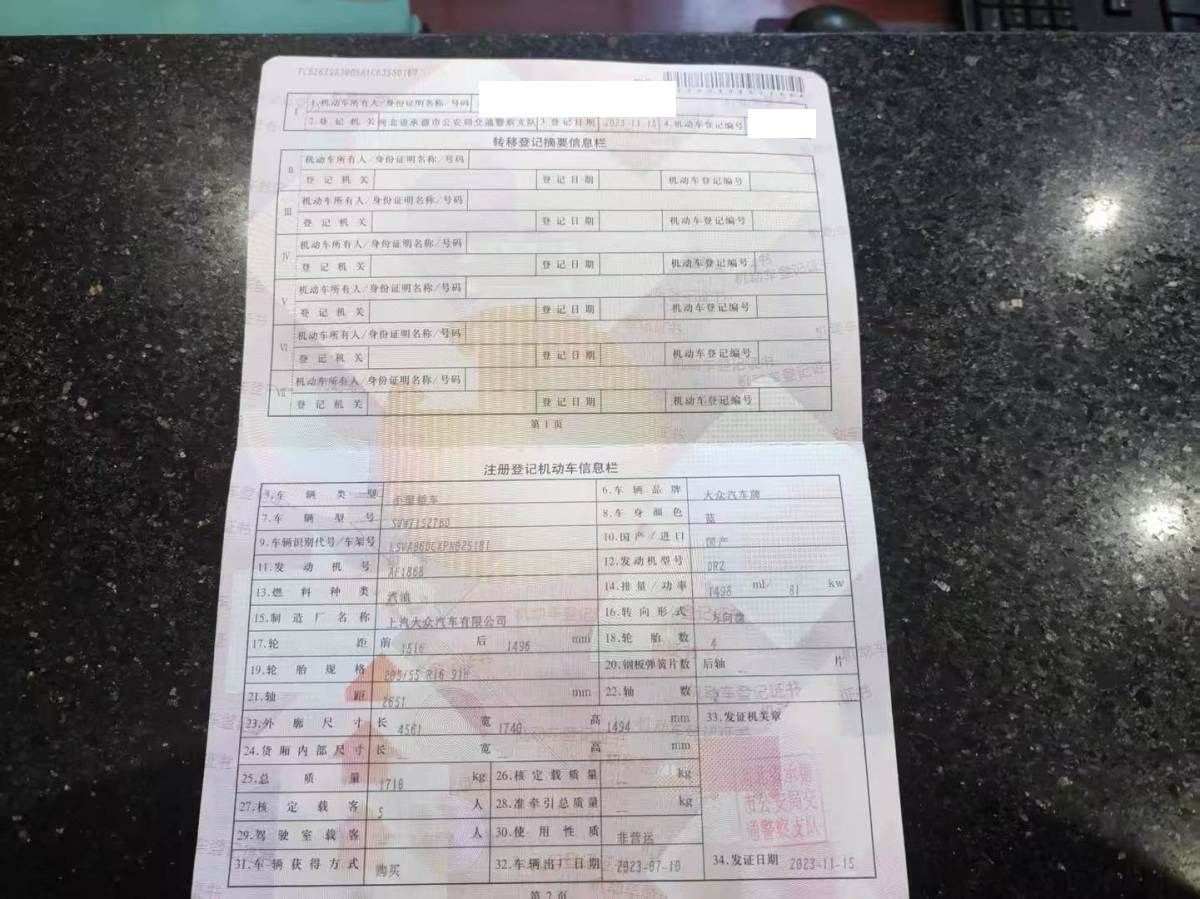 1.机动车所有人/身份证明名称/号码
I 2.登记机关 河北省承德市公安局交通警察支队 3.登记日期 2023-11-15 4.机动车登记编号
转移登记摘要信息栏
II 机动车所有人/身份证明名称/号码
登记机关 登记日期 机动车登记编号
III 机动车所有人/身份证明名称/号码
登记机关 登记日期 机动车登记编号
IV 机动车所有人/身份证明名称/号码
登记机关 登记日期 机动车登记编号
V 机动车所有人/身份证明名称/号码
登记机关 登记日期 机动车登记编号
VI 机动车所有人/身份证明名称/号码
登记机关 登记日期 机动车登记编号
VII 机动车所有人/身份证明名称/号码
登记机关 登记日期 机动车登记编号
第1页
注册登记机动车信息栏
5.车辆类型 6.车辆品牌 大众汽车牌
7.车辆型号 8.车身颜色 蓝
9.车辆识别代号/车架号 10.国产/进口 国产
11.发动机号 AF1868 12.发动机型号 DRZ
13.燃料种类 汽油 14.排量/功率 1498 ml/ 81 kw
15.制造厂名称 上汽大众汽车有限公司 16.转向形式 方向盘
17.轮距 前 1516 后 1496 mm 18.轮胎数 4
19.轮胎规格 205/55 R16 91H 20.钢板弹簧片数 后轴 片
21.轴距 2651 mm 22.轴数 2
23.外廓尺寸 长 4561 宽 1740 高 1494 mm 33.发证机关章
24.货厢内部尺寸 长 宽 高 mm
25.总质量 1710 kg 26.核定载质量 kg
27.核定载客 5 人 28.准牵引总质量 kg
29.驾驶室载客 人 30.使用性质 非营运
31.车辆获得方式 购买 32.车辆出厂日期 2023-07-10 34.发证日期 2023-11-15
河北省承德
市公安局交
通警察支队
第2页